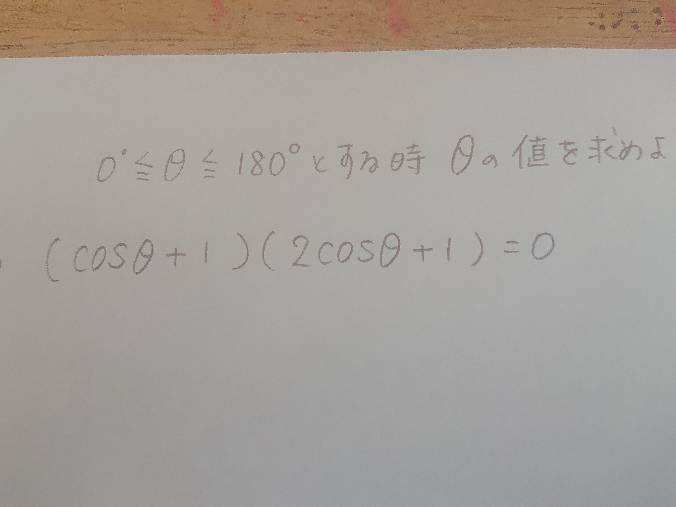 0°≦θ≦180°とする時 θの値を求めよ
(cosθ+1)(2cosθ+1)=0